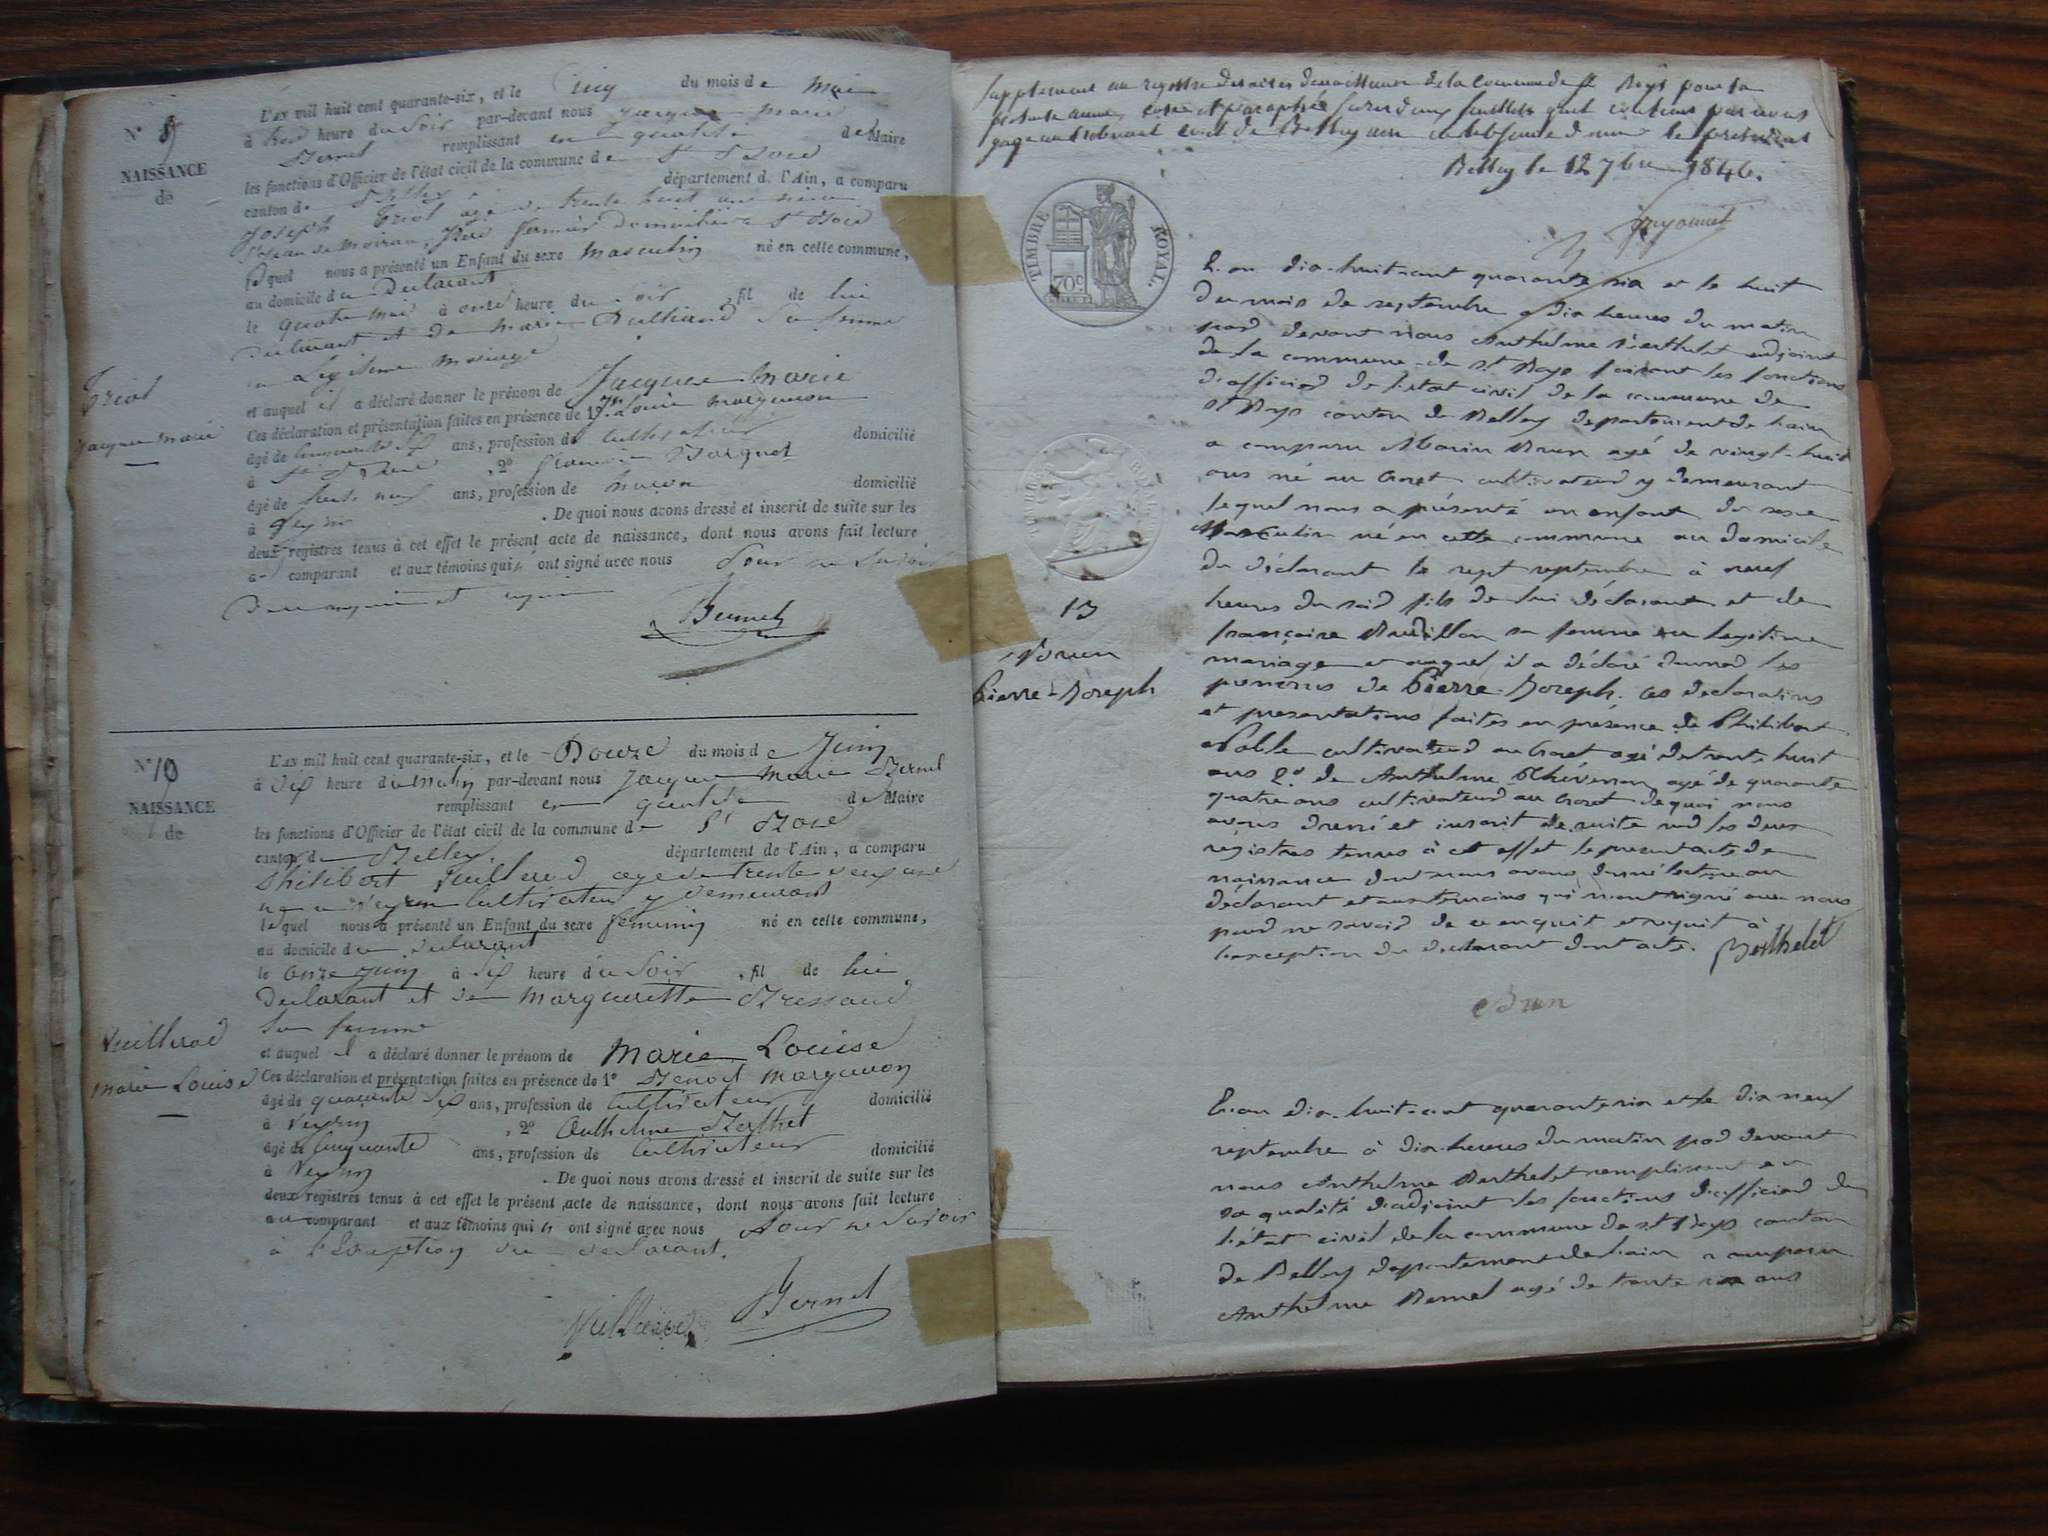 N° 9
NAISSANCE
de
Triol
Jacques Marie
L'AN mil huit cent quarante-six, et le Cinq du mois de Mai
à heure du Soir par-devant nous Jacques Marie
Bernel remplissant en qualité de Maire
les fonctions d'Officier de l'état civil de la commune de St
canton de Belley département de l'Ain, a comparu
Joseph Triol âgé de trente huit ans
fermier domicilié à St
lequel nous a présenté un Enfant du sexe masculin né en cette commune,
au domicile du Declarant
le quatre Mai à onze heure du Soir fil de lui
declarant et de Marie sa femme
en Légitime Mariage
et auquel il a déclaré donner le prénom de Jacques Marie
Ces déclaration et présentation faites en présence de 1° Louis
âgé de cinquante ans, profession de Cultivateur domicilié
à St , 2° Borquet
âgé de trente neuf ans, profession de maçon domicilié
à . De quoi nous avons dressé et inscrit de suite sur les
deux registres tenus à cet effet le présent acte de naissance, dont nous avons fait lecture
au comparant et aux témoins qui n ont signé avec nous Pour ne Savoir
de ce enquis et requis
Bernel
N° 10
NAISSANCE
de
Vuillerod
Marie Louise
L'AN mil huit cent quarante-six, et le Douze du mois de Juin
à Dix heure du Matin par-devant nous Jacques Marie Bernel
remplissant en qualité de Maire
les fonctions d'Officier de l'état civil de la commune de St
canton de Belley département de l'Ain, a comparu
Philibert Vuillerod age de trente deux ans
né a Veyrin Cultivateur y demeurant
lequel nous a présenté un Enfant du sexe féminin né en cette commune,
au domicile du declarant
le Onze Juin à Dix heure du Soir , fil de lui
Declarant et de Marguerette Bressaud
Sa femme
et auquel il a déclaré donner le prénom de Marie Louise
Ces déclaration et présentation faites en présence de 1° Benoit
âgé de quarante ans, profession de Cultivateur domicilié
à Veyrin , 2° Anthelme Berthet
âgé de Cinquante ans, profession de Cultivateur domicilié
à Veyrin . De quoi nous avons dressé et inscrit de suite sur les
deux registres tenus à cet effet le présent acte de naissance, dont nous avons fait lecture
au comparant et aux témoins qui n ont signé avec nous Pour ne Savoir
à l'Exception du declarant.
Bernel
Supplement au registre des actes de naissance de la Commune de St Boys pour la
presente année, coté et paraphé
Belley le 12 7bre 1846.
TIMBRE ROYAL
70c
L'an dix-huit-cent quarante six et le huit
du mois de septembre à dix heures du matin
pard devant nous Anthelme Berthelet adjoint
de la commune de St Boys faisant les fonctions
d'officier de l'état civil de la commune de
St Boys canton de Belley departement de lain
a comparu Marin Brun agé de vingt-huit
ans né au cultivateurd y demeurant
lequel nous a présenté un enfant du sexe
Masculin né en cette commune au domicile
du déclarant le sept septembre à neuf
heures du soird fils de lui déclarant et de
françoise sa femme en legitime
mariage et auquel il a déclaré donnerd les
prenoms de Pierre-Joseph. ces declarations
et presentations faites en présence de Philibert
cultivateurd au agé de trente huit
ans 2.d de Anthelme Thévenon agé de quarante
quatre ans cultivateurd au de quoi nous
avons dressé et inscrit de suite surd les deux
registres tenus à cet effet le present acte de
naissance dont nous avons donné lecture au
déclarant et aux temoins qui n'ont signé avec nous
pourd ne savoird de ce enquit et requit à
l'exception du declarant dont acte. Berthelet
Brun
13
Brun
Pierre-Joseph
L'an dix-huit-cent quarante six et le dix neuf
septembre à dix-heures du matin pard devant
nous Anthelme Berthelet remplissant en
sa qualité d'adjoint les fonctions d'officierd de
l'état civil de la commune de St Boys canton
de Belley departement de lain a comparu
Anthelme Bernel agé de trente six ans